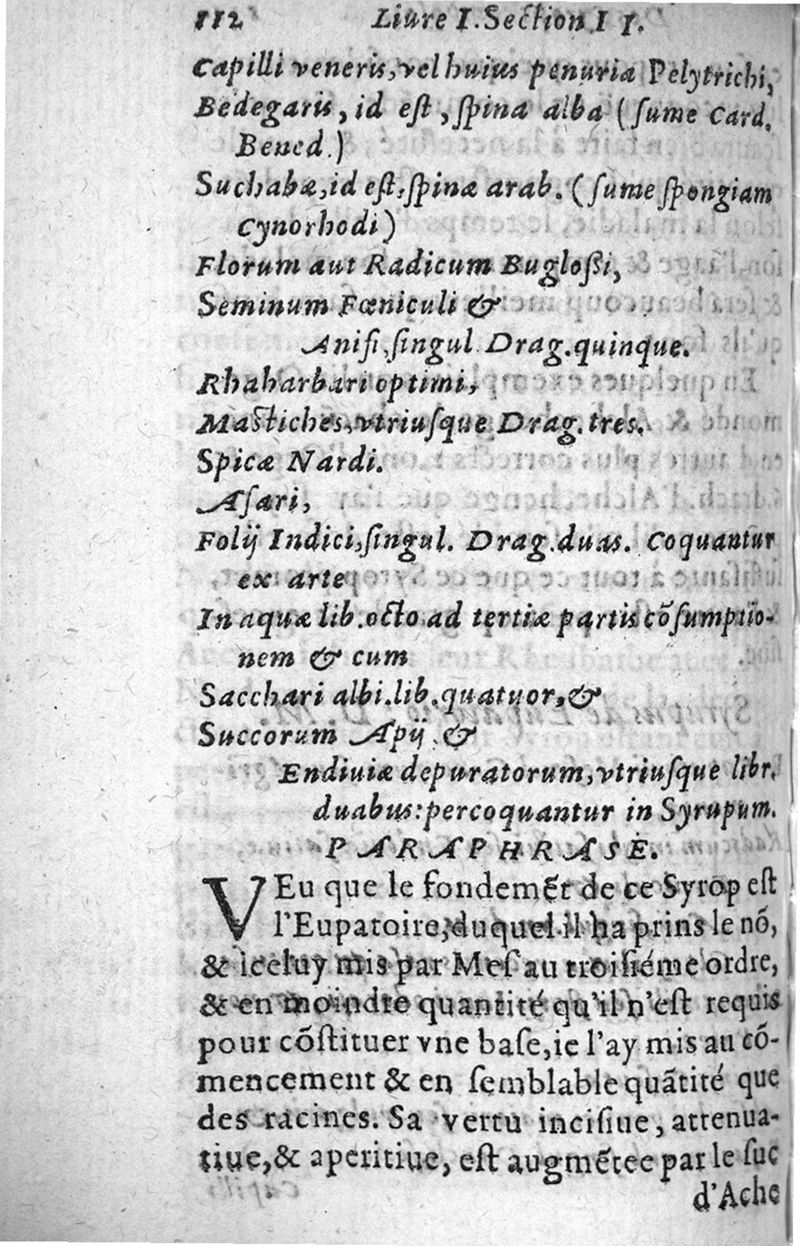 112 Liure I. Section I I.
Capilli veneris, vel huius penuria Pelytrichi,
Bedegaris, id est, spina alba (sume Card.
Bened.)
Suchabæ, id est, spinæ arab. (sume spongiam
Cynorhodi)
Florum aut Radicum Buglossi,
Seminum Fœniculi &
Anisi, singul. Drag. quinque.
Rhabarbari optimi,
Mastiches, vtriusque Drag. tres.
Spicæ Nardi.
Asari,
Folij Indici, singul. Drag. duas. Coquantur
ex arte
In aquæ lib. octo ad tertiæ partis cõsumptio-
nem & cum
Sacchari albi. lib. quatuor, &
Succorum Apij &
Endiuiæ depuratorum, vtriusque libr.
duabus: percoquantur in Syrupum.
PARAPHRASE.
VEu que le fondemẽt de ce Syrop est
l'Eupatoire, duquel il ha prins le nõ,
& iceluy mis par Mes au troisiéme ordre,
& en moindre quantité qu'il n'est requis
pour cõstituer vne base, ie l'ay mis au cõ-
mencement & en semblable quãtité que
des racines. Sa vertu incisiue, attenua-
tiue, & aperitiue, est augmẽtee par le suc
d'Ache